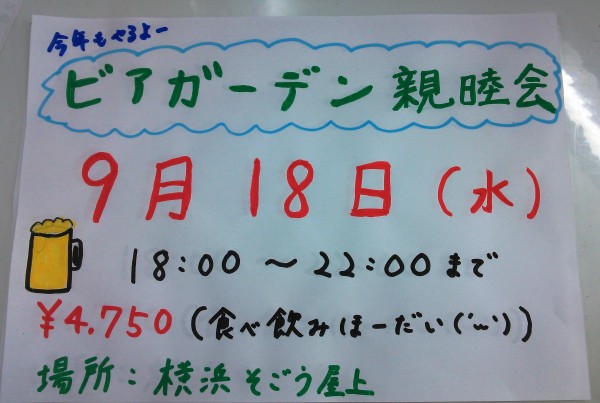 今年もやるよー
ビアガーデン親睦会
9月18日(水)
18:00～22:00まで
¥4.750(食べ飲みほーだい('ω'))
場所:横浜そごう屋上